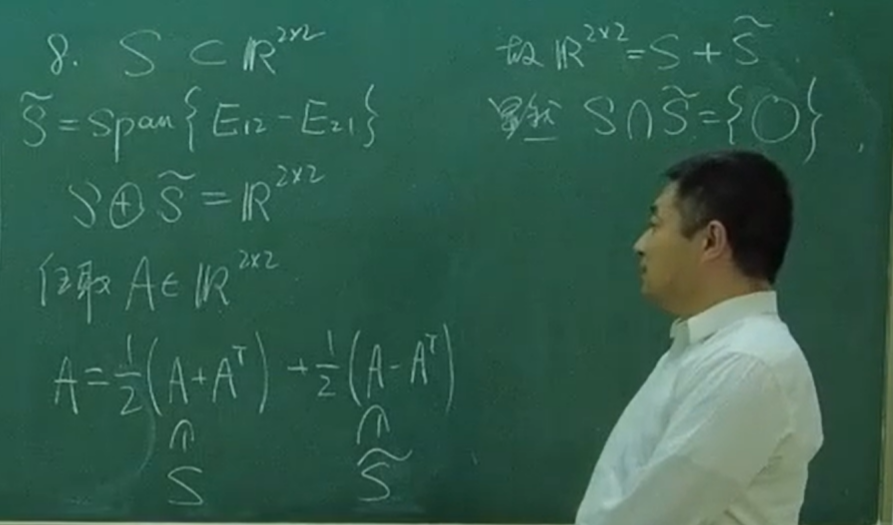 8. S ⊂ ℝ^{2×2}
S̃ = span{E₁₂ - E₂₁}
S ⊕ S̃ = ℝ^{2×2}
任取 A ∈ ℝ^{2×2}
A = 1/2 (A + Aᵀ) + 1/2 (A - Aᵀ)
∩ ∩
S S̃
故 ℝ^{2×2} = S + S̃
显然 S ∩ S̃ = {O},